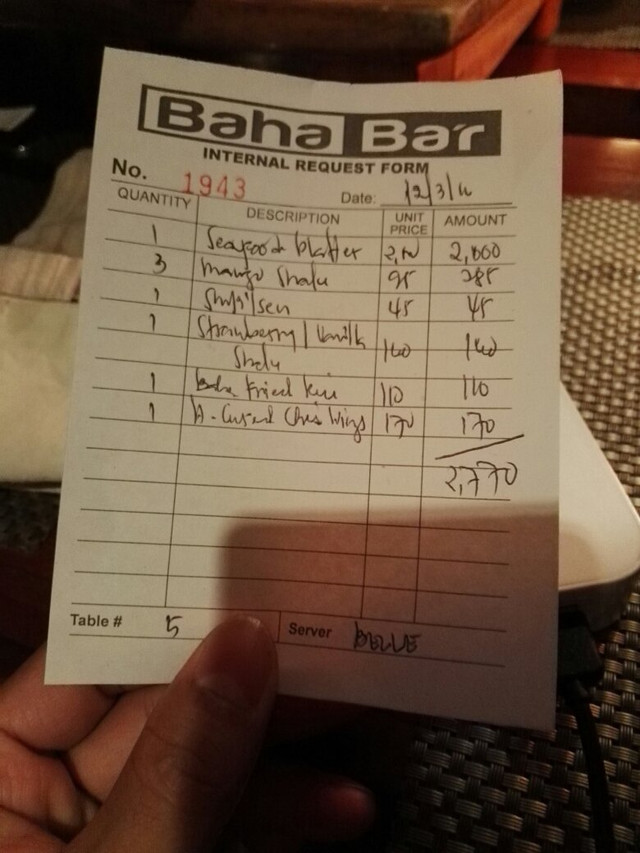 Baha Bar
INTERNAL REQUEST FORM
No. 1943 Date: 12/3/16
QUANTITY DESCRIPTION UNIT PRICE AMOUNT
1 Seafood platter 2,000
3 mango Shake 95 285
1 45 45
1 Strawberry / Vanilla
140 140
1 Fried Rice 110 110
1 Wings 170 170
2,770
Table # 5 Server BELLE